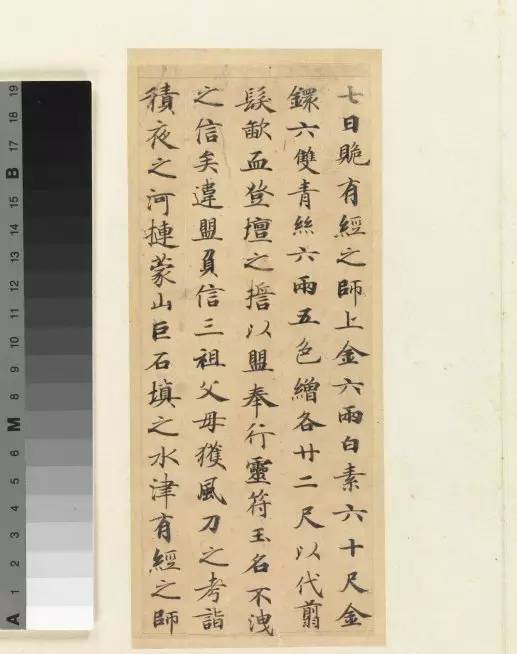 七日䞈有經之師上金六兩白素六十尺金
鐶六雙青絲六兩五色繒各廿二尺以代翦
髮歃血登壇之擔以盟奉行靈符玉名不洩
之信矣違盟負信三祖父母獲風刀之考詣
積夜之河摙蒙山巨石填之水津有經之師
A 1 2 3 4 5 6 M 8 9 10 11 12 13 14 15 B 17 18 19